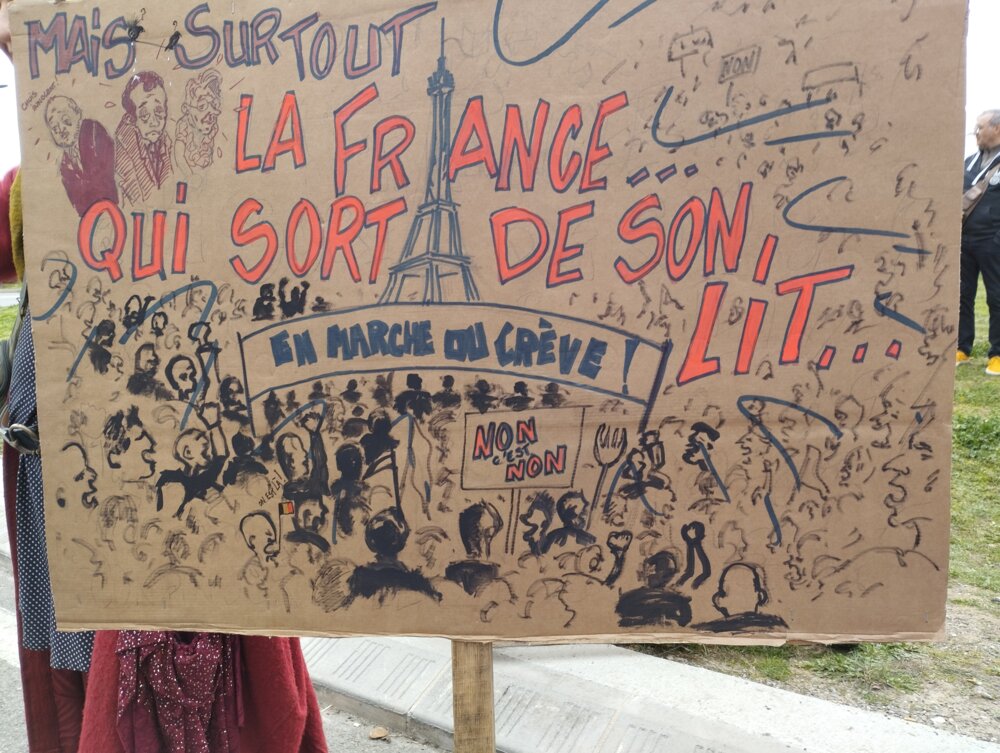 MAiS SURTOUT
LA FRANCE...
QUi SORT DE SON
LiT...
NON
EN MARCHE OU CRÈVE !
NON
C'EST
NON
ON EST LÀ!